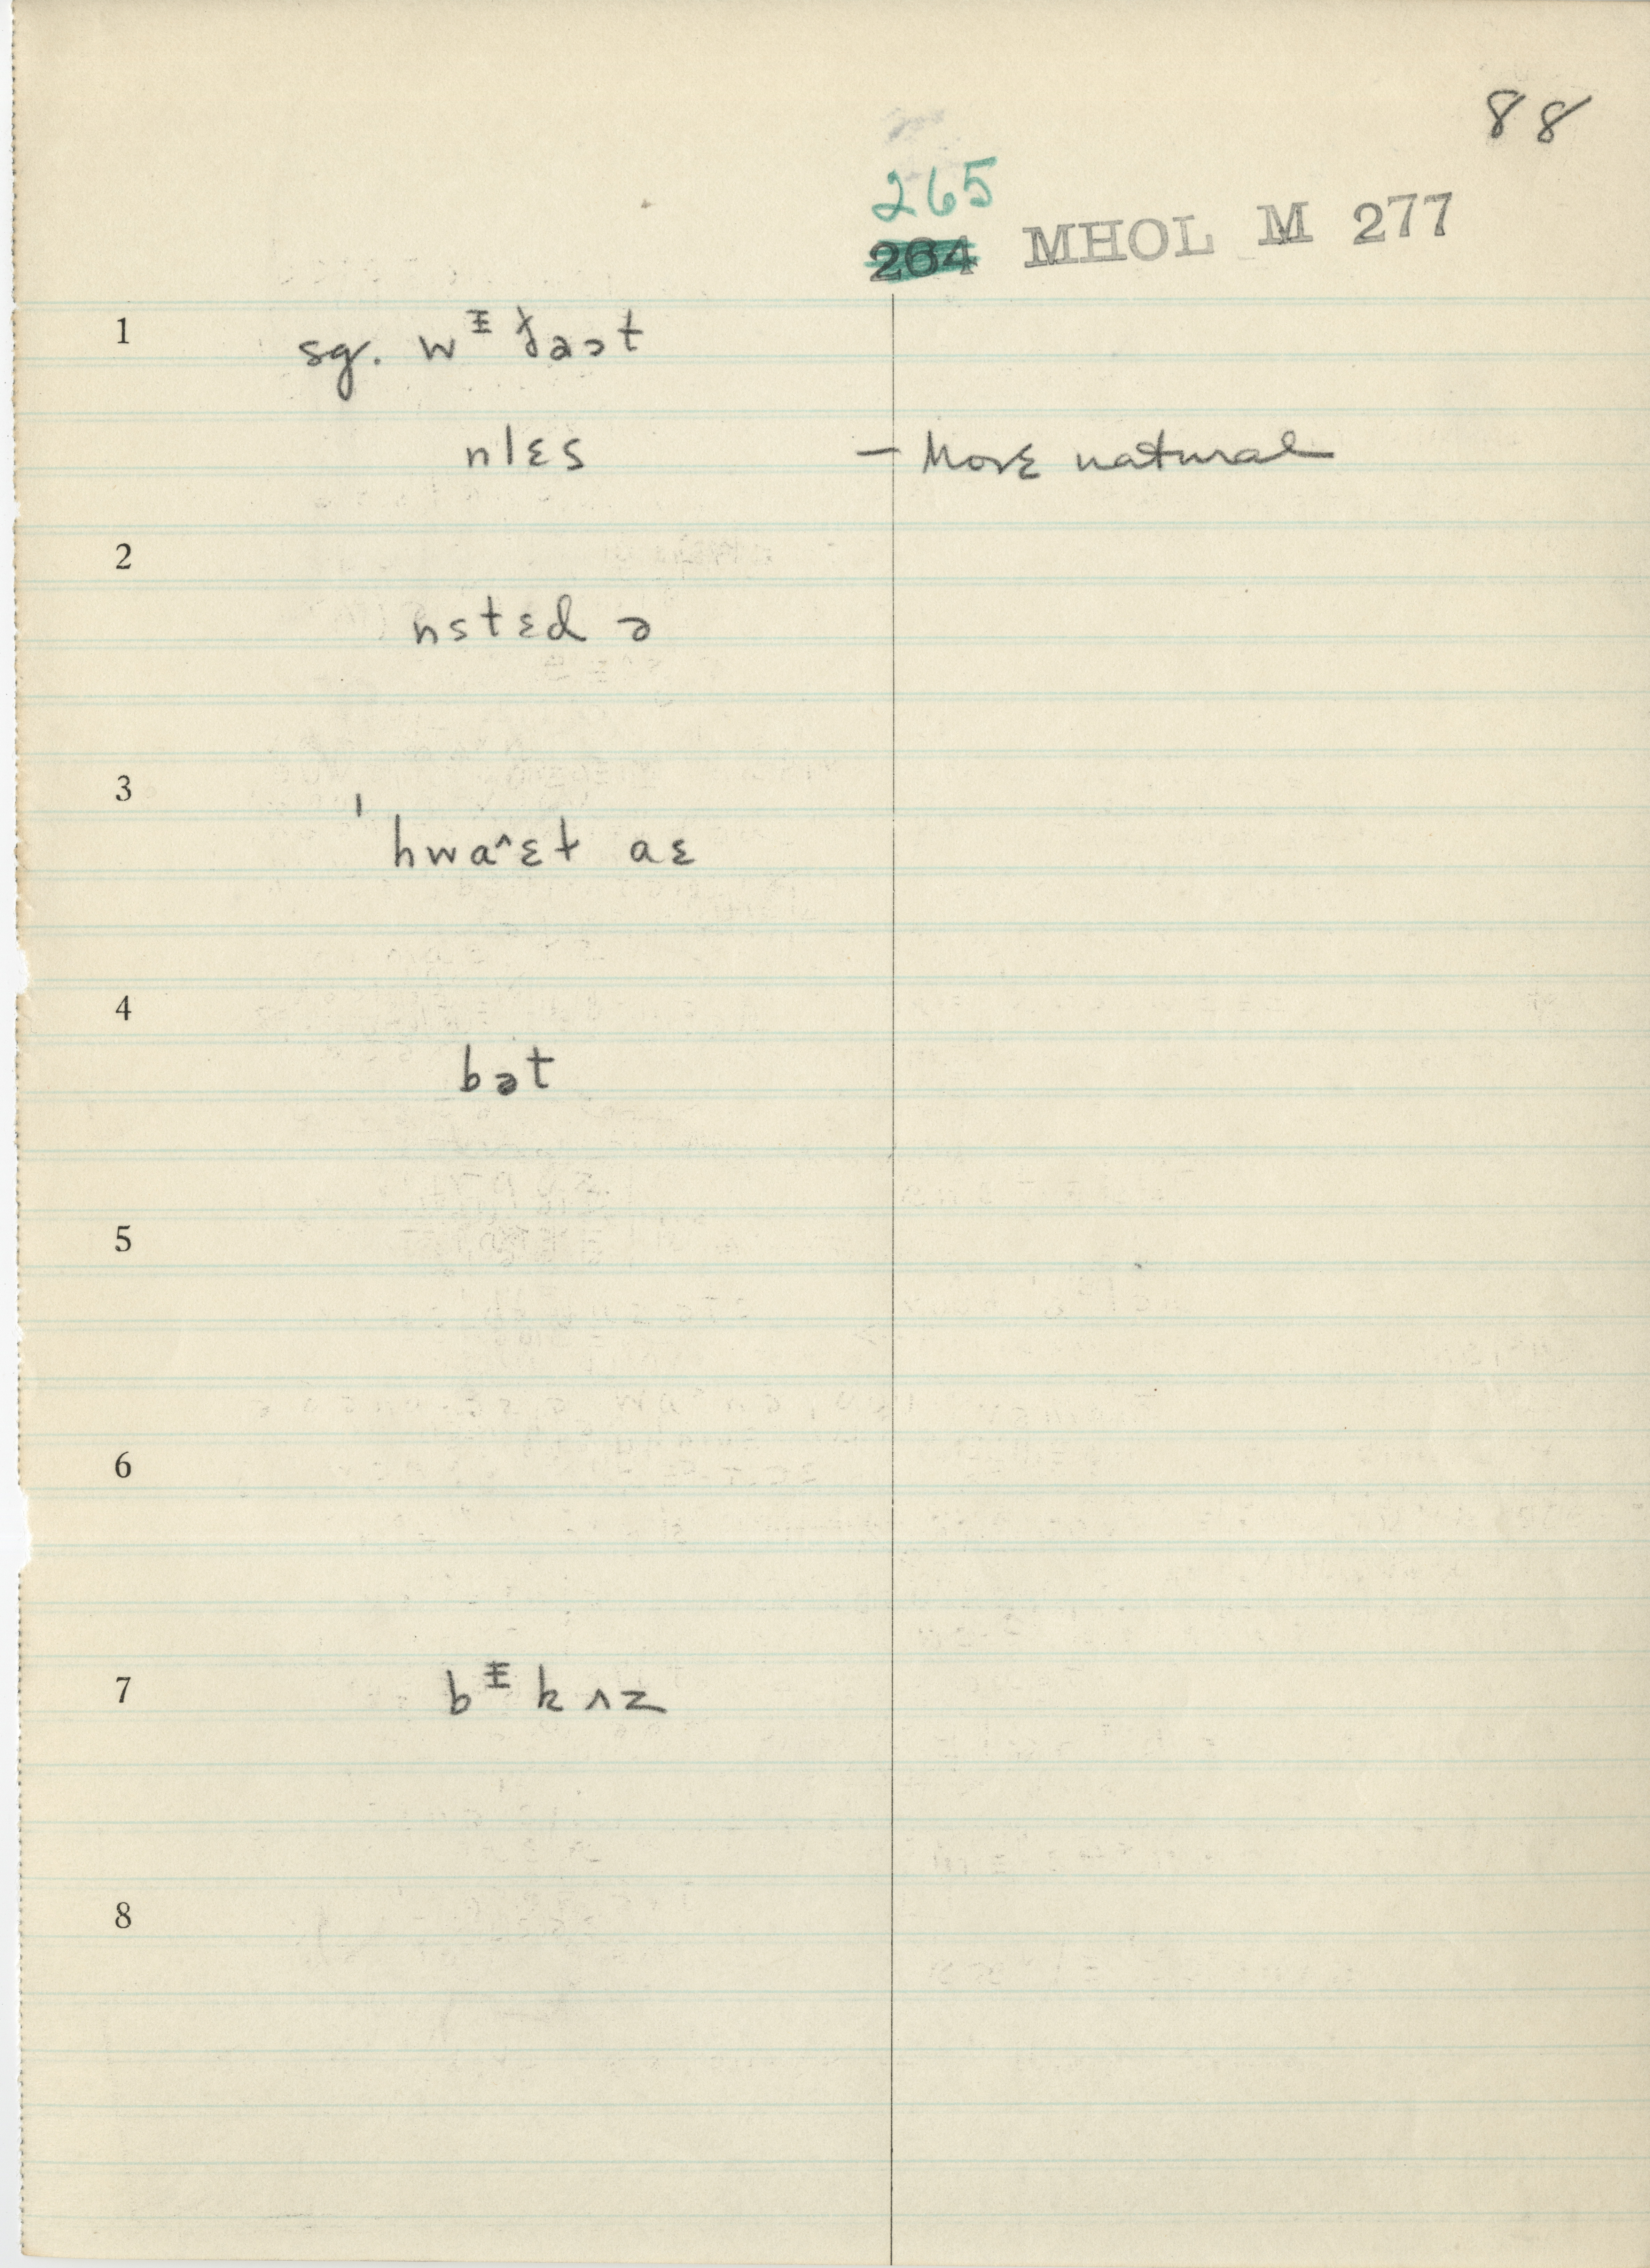 88
265
264 MHOL M 277
1
sg. wᵻɟəɔt
nlɛs – More natural
2
nstɛd ə
3
ˈhwa^ɛt aɛ
4
bət
5
6
7
bᵻkʌz
8